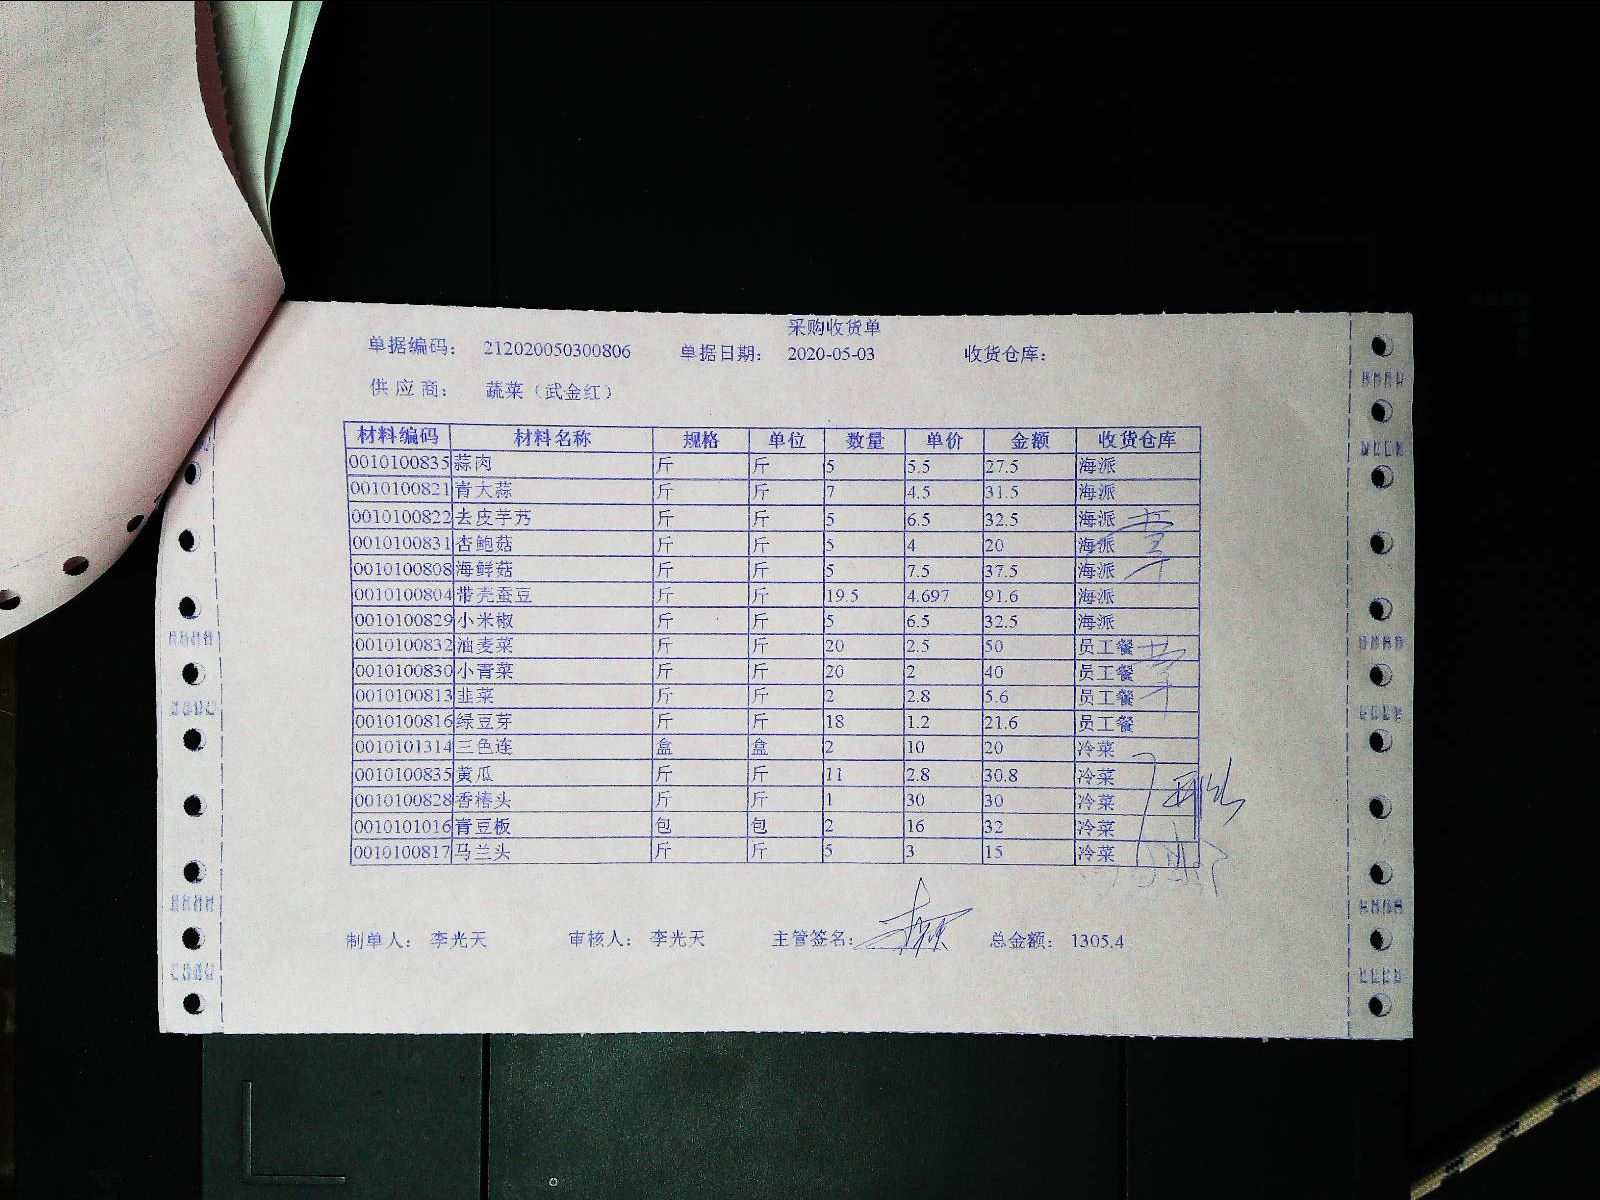 采购收货单
单据编码： 212020050300806 单据日期： 2020-05-03 收货仓库：
供 应 商： 蔬菜（武金红）
材料编码 材料名称 规格 单位 数量 单价 金额 收货仓库
0010100835 蒜肉 斤 斤 5 5.5 27.5 海派
0010100821 青大蒜 斤 斤 7 4.5 31.5 海派
0010100822 去皮芋艿 斤 斤 5 6.5 32.5 海派
0010100831 杏鲍菇 斤 斤 5 4 20 海派
0010100808 海鲜菇 斤 斤 5 7.5 37.5 海派
0010100804 带壳蚕豆 斤 斤 19.5 4.697 91.6 海派
0010100829 小米椒 斤 斤 5 6.5 32.5 海派
0010100832 油麦菜 斤 斤 20 2.5 50 员工餐
0010100830 小青菜 斤 斤 20 2 40 员工餐
0010100813 韭菜 斤 斤 2 2.8 5.6 员工餐
0010100816 绿豆芽 斤 斤 18 1.2 21.6 员工餐
0010101314 三色连 盒 盒 2 10 20 冷菜
0010100835 黄瓜 斤 斤 11 2.8 30.8 冷菜
0010100828 香椿头 斤 斤 1 30 30 冷菜
0010101016 青豆板 包 包 2 16 32 冷菜
0010100817 马兰头 斤 斤 5 3 15 冷菜
制单人： 李光天 审核人： 李光天 主管签名： 总金额： 1305.4